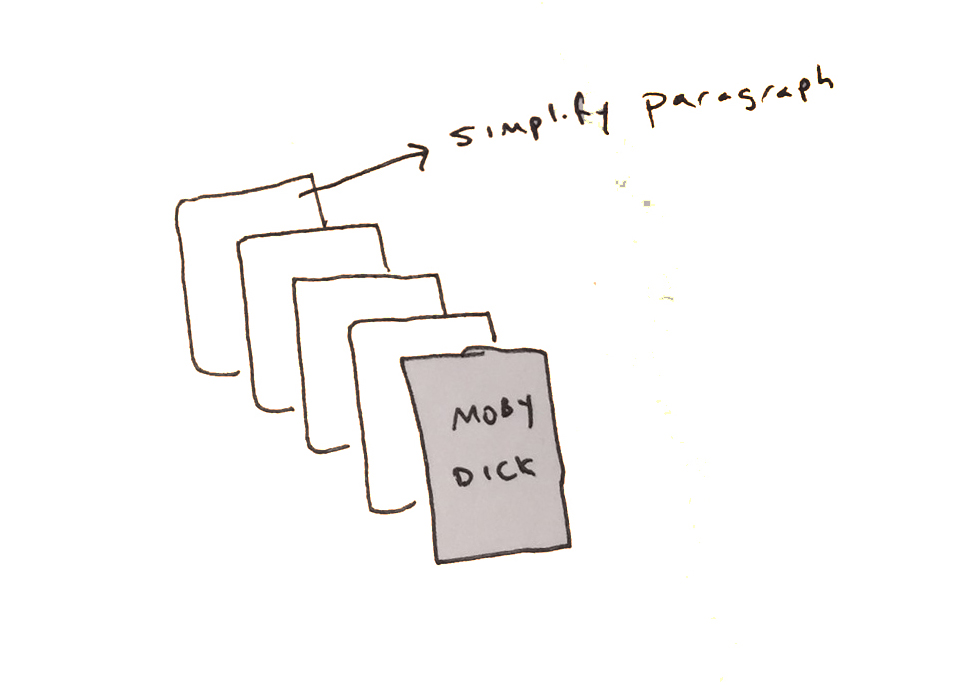 simplify paragraph
MOBY
DICK